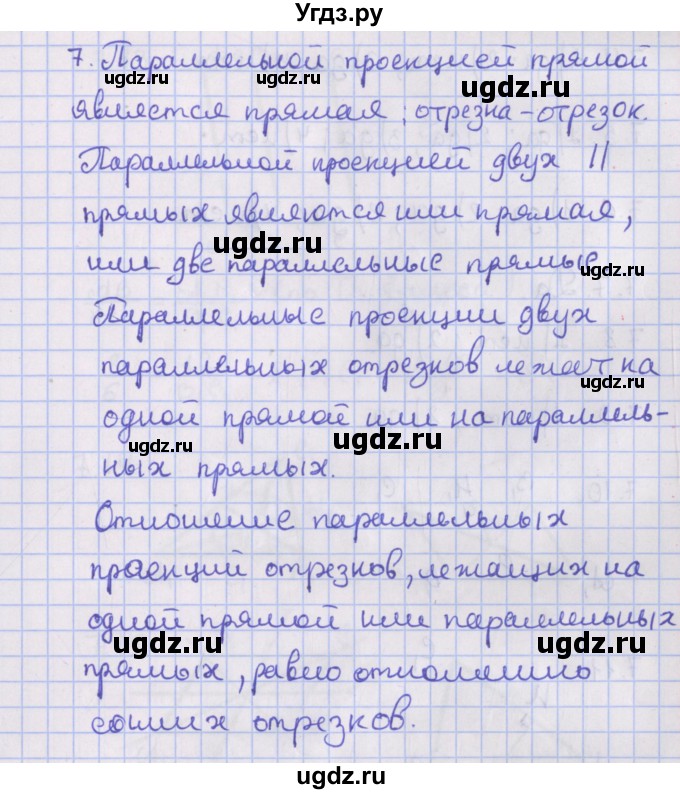 Угдз.ру
7. Параллельной проекцией прямой
ugdz.ru ugdz.ru ugdz.ru
является прямая; отрезка - отрезок.
ugdz.ru
Параллельной проекцией двух ||
прямых являются или прямая,
ugdz.ru
или две параллельные прямые.
ugdz.ru
Параллельные проекции двух
параллельных отрезков лежат на
ugdz.ru
одной прямой или на параллель-
ugdz.ru ugdz.ru
ных прямых.
Отношение параллельных
проекций отрезков, лежащих на
одной прямой или параллельных
ugdz.ru ugdz.ru
прямых, равно отношению
самих отрезков.
ugdz.ru
ugdz.ru